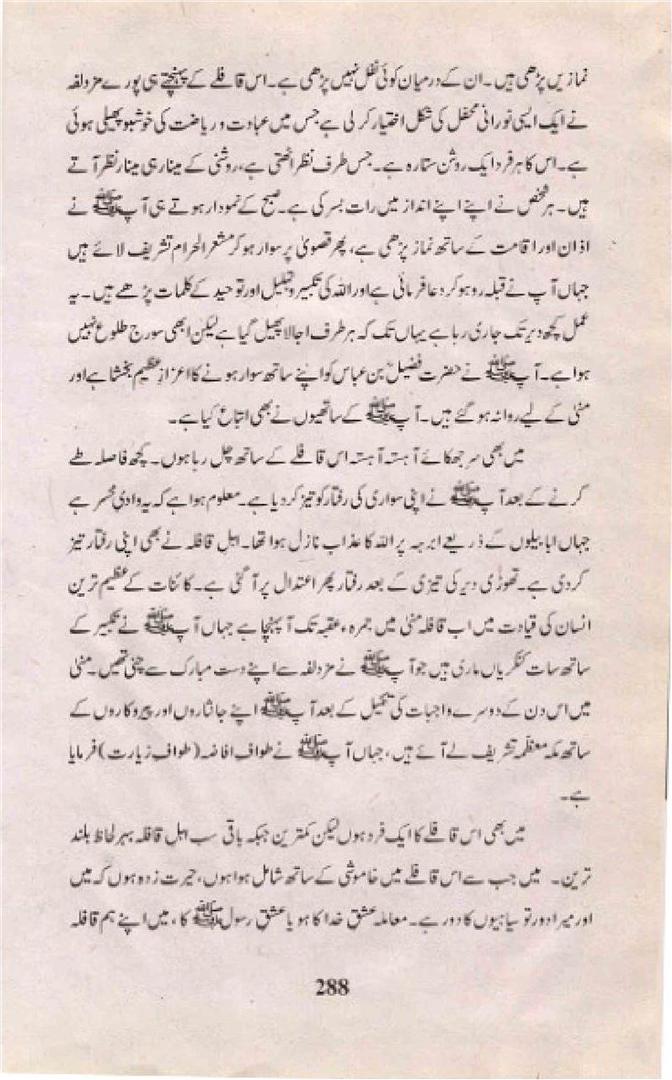 نمازیں پڑھی ہیں۔ ان کے درمیان کوئی نفل نہیں پڑھی ہے۔ اس قافلے کے پہنچتے ہی پورے مزدلفہ
نے ایک ایسی نورانی محفل کی شکل اختیار کر لی ہے جس میں عبادت و ریاضت کی خوشبو پھیلی ہوئی
ہے۔ اس کا ہر فرد ایک روشن ستارہ ہے۔ جس طرف نظر اٹھتی ہے، روشنی کے مینار ہی مینار نظر آتے
ہیں۔ ہر شخص نے اپنے اپنے انداز میں رات بسر کی ہے۔ صبح کے نمودار ہوتے ہی آپ ﷺ نے
اذان اور اقامت کے ساتھ نماز پڑھی ہے، پھر قصویٰ پر سوار ہو کر مشعر الحرام تشریف لائے ہیں
جہاں آپ نے قبلہ رو ہو کر دعا فرمائی ہے اور اللہ کی تکبیر و تہلیل اور توحید کے کلمات پڑھے ہیں۔ یہ
عمل کچھ دیر تک جاری رہا ہے یہاں تک کہ ہر طرف اجالا پھیل گیا ہے لیکن ابھی سورج طلوع نہیں
ہوا ہے۔ آپ ﷺ نے حضرت فضیلؓ بن عباس کو اپنے ساتھ سوار ہونے کا اعزاز عظیم بخشا ہے اور
منیٰ کے لیے روانہ ہو گئے ہیں۔ آپ ﷺ کے ساتھیوں نے بھی اتباع کیا ہے۔
میں بھی سر جھکائے آہستہ آہستہ اس قافلے کے ساتھ چل رہا ہوں۔ کچھ فاصلہ طے
کرنے کے بعد آپ ﷺ نے اپنی سواری کی رفتار کو تیز کر دیا ہے۔ معلوم ہوا ہے کہ یہ وادیٔ محسر ہے
جہاں ابابیلوں کے ذریعے ابرہہ پر اللہ کا عذاب نازل ہوا تھا۔ اہل قافلہ نے بھی اپنی رفتار تیز
کر دی ہے۔ تھوڑی دیر کی تیزی کے بعد رفتار پھر اعتدال پر آ گئی ہے۔ کائنات کے عظیم ترین
انسان کی قیادت میں اب قافلہ منیٰ میں جمرہ ءعقبہ تک آ پہنچا ہے جہاں آپ ﷺ نے تکبیر کے
ساتھ سات کنکریاں ماری ہیں جو آپ ﷺ نے مزدلفہ سے اپنے دست مبارک سے چنی تھیں۔ منیٰ
میں اس دن کے دوسرے واجبات کی تکمیل کے بعد آپ ﷺ اپنے جانثاروں اور پیروکاروں کے
ساتھ مکہ معظمہ تشریف لے آئے ہیں، جہاں آپ ﷺ نے طواف افاضہ (طواف زیارت) فرمایا
ہے۔
میں بھی اس قافلے کا ایک فرد ہوں لیکن کمترین جبکہ باقی سب اہل قافلہ بہر لحاظ بلند
ترین۔ میں جب سے اس قافلے میں خاموشی کے ساتھ شامل ہوا ہوں، حیرت زدہ ہوں کہ میں
اور میرا دور تو سیاہیوں کا دور ہے۔ معاملہ عشق خدا کا ہو یا عشق رسول ﷺ کا، میں اپنے ہم قافلہ
288